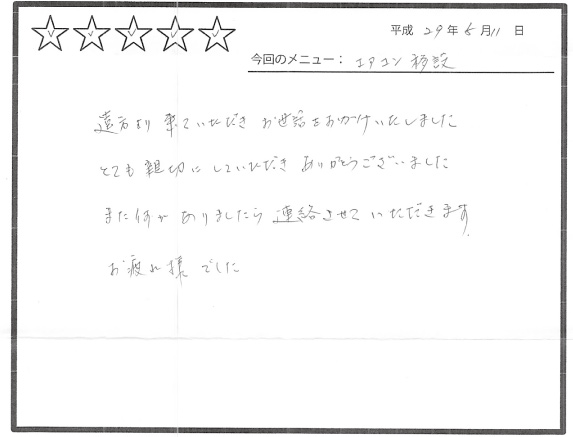 平成 29年 5月11日
今回のメニュー： エアコン移設
遠方より来ていただきお世話をおかけいたしました
とても親切にしていただきありがとうございました
また何かありましたら連絡させていただきます。
お疲れ様でした